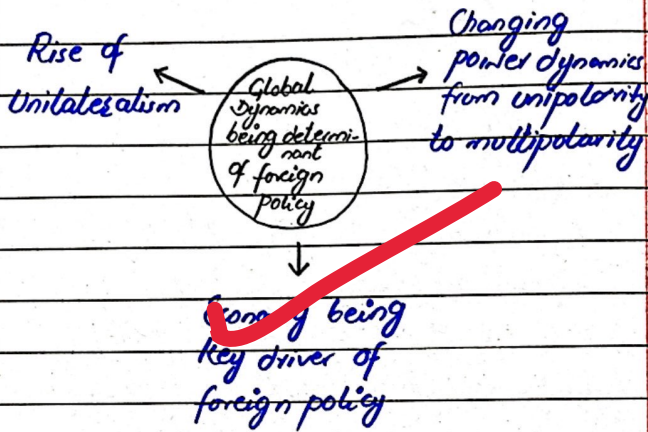 Rise of
Unilateralism
Global
Dynamics
being determi-
nant
of foreign
policy
Changing
power dynamics
from unipolarity
to multipolarity
Economy being
Key driver of
foreign policy